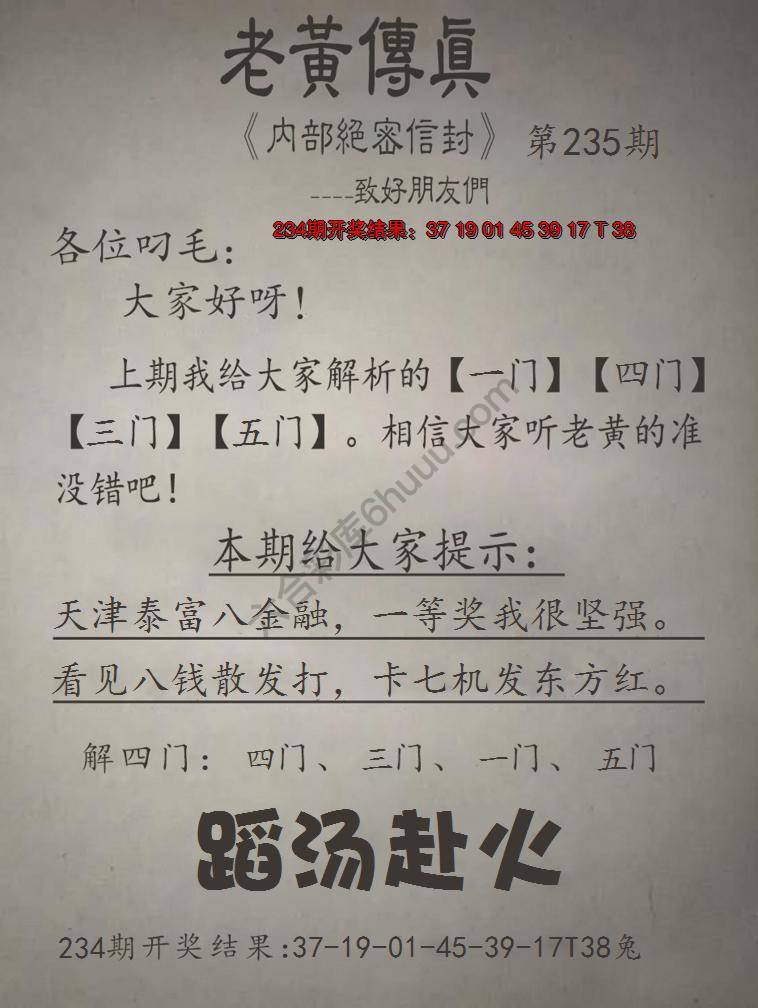 老黃傳眞
《内部絕密信封》 第235期
----致好朋友們
234期开奖结果：37 19 01 45 39 17 T 38
各位叼毛：
大家好呀！
上期我给大家解析的【一门】【四门】
【三门】【五门】。相信大家听老黄的准
没错吧！
本期给大家提示：
天津泰富八金融，一等奖我很坚强。
看见八钱散发打，卡七机发东方红。
解四门： 四门、 三门、 一门、 五门
蹈汤赴火
234期开奖结果:37-19-01-45-39-17T38兔
六合彩库6huuu.com